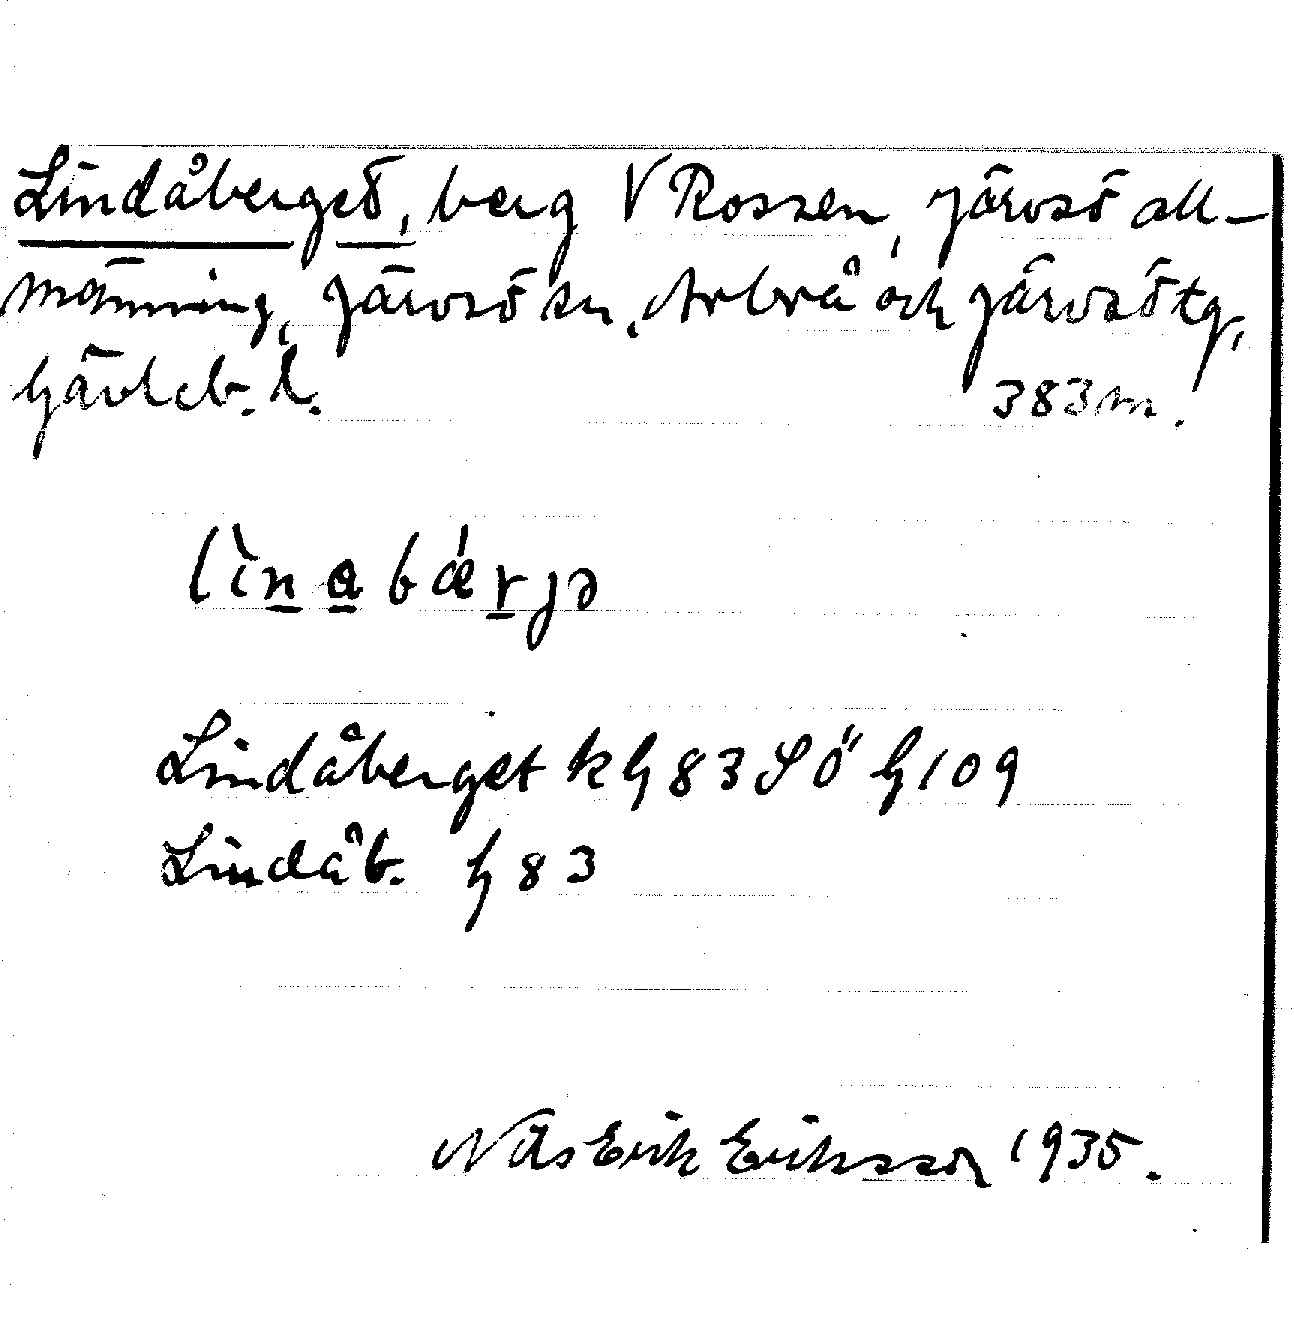 Lindåberget, berg V Rossen, Järvsö all-
männing, Järvsö sn, Arbrå och Järvsö tg,
Gävleb. l. 383 m.
lìnabǽrjə
Lindåberget k G 83 SÖ G 109
Lindåb. G 83
Nils Erik Eriksson 1935.